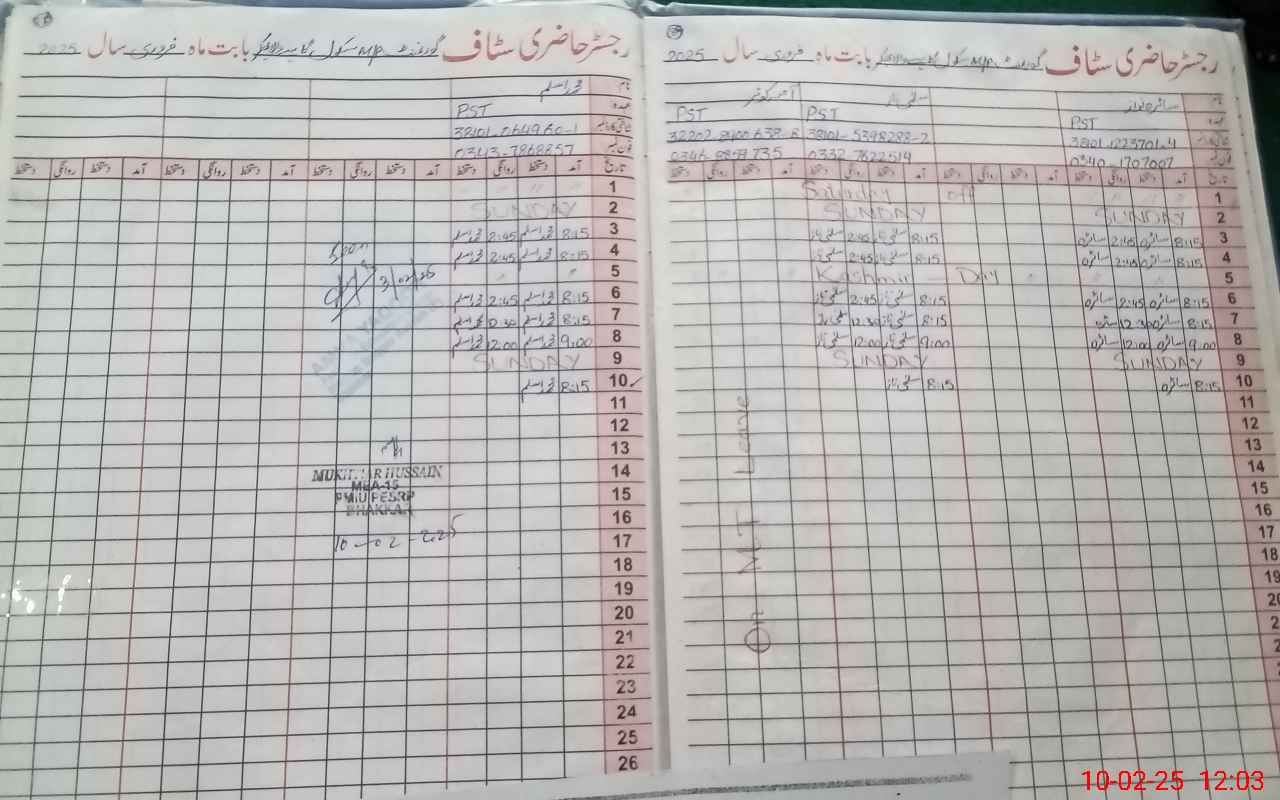 رجسٹر حاضری سٹاف گورنمنٹ M/P سکول بابت ماہ فروری سال 2025
نام محمد اسلم
عہدہ PST
38101-0664960-1
فون نمبر 0343-7868857
تاریخ آمد دستخط روانگی دستخط آمد دستخط روانگی دستخط آمد دستخط روانگی دستخط آمد دستخط روانگی دستخط
1
2 SUNDAY
3 8:15 محمد اسلم 2:45 محمد اسلم
4 8:15 محمد اسلم 2:45 محمد اسلم
5
6 8:15 محمد اسلم 2:45 محمد اسلم
7 8:15 محمد اسلم 12:30 محمد اسلم
8 9:00 محمد اسلم 12:00 محمد اسلم
9 SUNDAY
10 8:15 محمد اسلم
11
12
13
14
15
16
17
18
19
20
21
22
23
24
25
26
Seen
3/02/25
MUKHTAR HUSSAIN
MEA-15
PMIU PESRP
BHAKKAR
10-02-225
رجسٹر حاضری سٹاف گورنمنٹ M/P سکول بابت ماہ فروری سال 2025
نام
عہدہ PST PST PST
38101-1223701-4 38101-5398288-2 32202-8400638-8
فون نمبر 0340-1707007 0332-7822514 0346-8859735
تاریخ آمد دستخط روانگی دستخط آمد دستخط روانگی دستخط آمد دستخط روانگی دستخط آمد دستخط روانگی دستخط
1 Saturday off
2 SUNDAY SUNDAY
3 8:15 سائرہ 2:45 سائرہ 8:15 2:45
4 8:15 سائرہ 2:45 سائرہ 8:15 2:45
5 Kashmir Day
6 8:15 سائرہ 2:45 سائرہ 8:15 2:45
7 8:15 سائرہ 12:30 سائرہ 8:15 12:30
8 9:00 سائرہ 12:00 سائرہ 9:00 12:00
9 SUNDAY SUNDAY
10 8:15 سائرہ 8:15
11
12
13
14
15
16
17
18
19
On MLT Leave
10-02-25 12:03